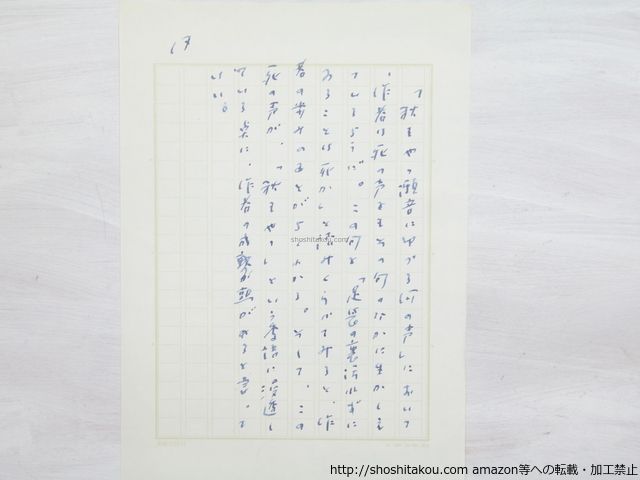 「秋もやゝ瀬音にゆづる河の声」において
、作者は死の声をもその句のなかに生かしえ
ているようだ。この句と「足袋の裏汚れずに
あることは死か」と読みくらべてみると、作
者の歩みのあとがよくわかる。そして、この
死の声が、「秋もやゝ」という季語に浸透し
ている点に、作者の成熟が
いい。
17
shoshitakou.com
http://shoshitakou.com amazon等への転載・加工禁止